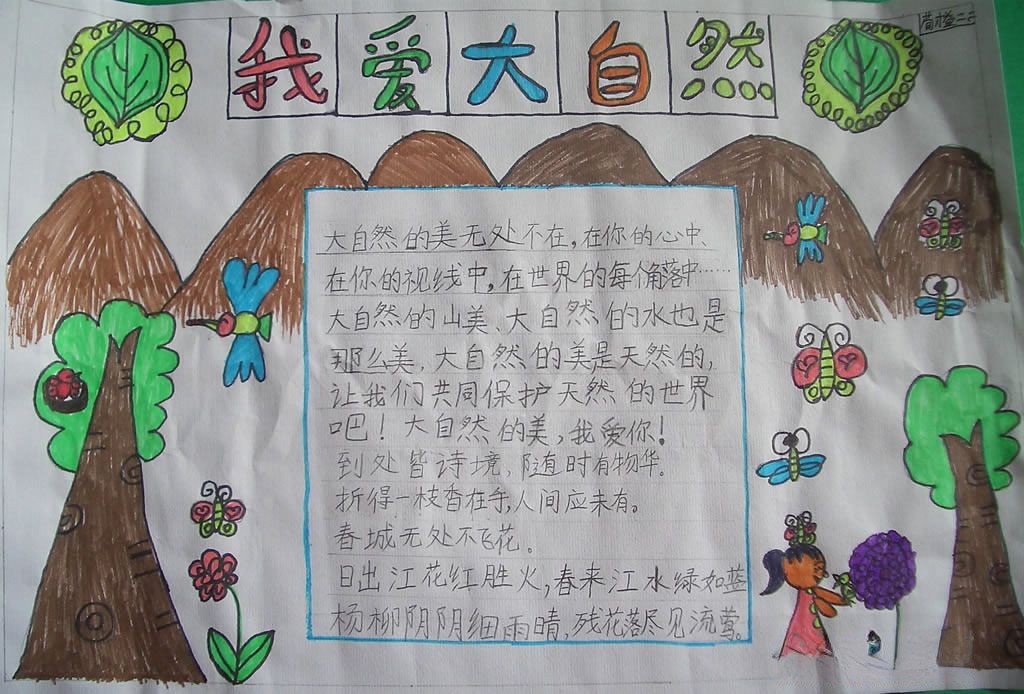 我爱大自然
大自然的美无处不在，在你的心中、
在你的视线中，在世界的每个角落中……
大自然的山美、大自然的水也是
那么美，大自然的美是天然的，
让我们共同保护天然的世界
吧！大自然的美，我爱你！
到处皆诗境，随时有物华。
折得一枝香在手，人间应未有。
春城无处不飞花。
日出江花红胜火，春来江水绿如蓝
杨柳阴阴细雨晴，残花落尽见流莺。